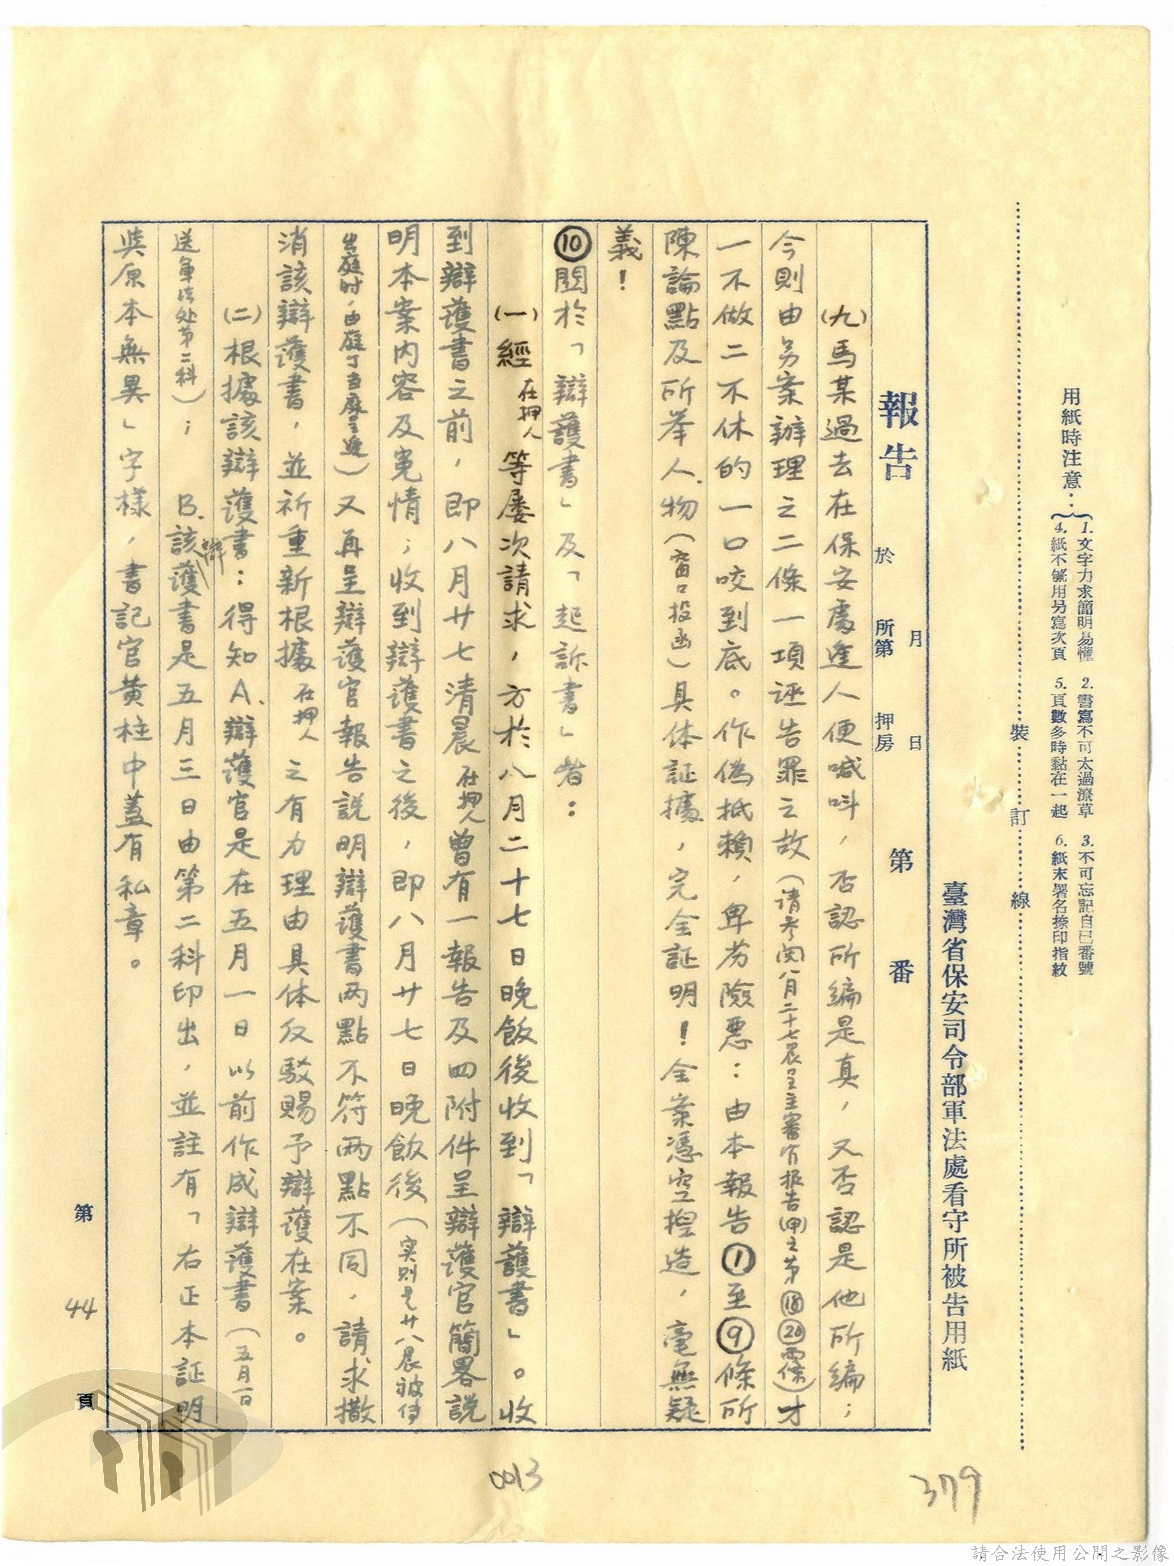 用紙時注意：
1.文字力求簡明易懂 2.書寫不可太過潦草 3.不可忘記自己番號
4.紙不够用另寫次頁 5.頁數多時黏在一起 6.紙末署名捺印指紋
裝 訂 線
臺灣省保安司令部軍法處看守所被告用紙
報告 於 月 日 所第 押房 第 番
(九)馬某過去在保安處逢人便喊叫，否認所編是真，又否認是他所編；
今則由另案辦理之二條一項誣告罪之故（请参閱八月二十七晨呈主審官报告(甲)之第⑱⑳两條）才
一不做二不休的一口咬到底。作僞抵賴，卑劣險惡：由本報告①至⑨條所
陳論點及所举人.物（窗口投函）具体証據，完全証明！全案憑空揑造，毫無疑
義！
⑩関於「辯護書」及「起訴書」者：
(一)經在押人等屡次請求，方於八月二十七日晚飯後收到「辯護書」。收
到辯護書之前，即八月廿七清晨在押人曾有一報告及四附件呈辯護官簡畧説
明本案内容及寃情；收到辯護書之後，即八月廿七日晚飯後（实則是廿八晨被傳
出庭时，由庭丁当麽呈逄）又再呈辯護官報告説明辯護書两點不符两點不同，請求撒
消該辯護書，並祈重新根據在押人之有力理由具体反駁賜予辯護在案。
(二)根據該辯護書：得知A.辯護官是在五月一日以前作成辯護書（五月一日
送軍法处第二科）； B.該辯護書是五月三日由第二科印出，並註有「右正本証明
與原本無異」字樣，書記官黄柱中蓋有私章。
第 44 頁
0013
379
請合法使用公開之影像